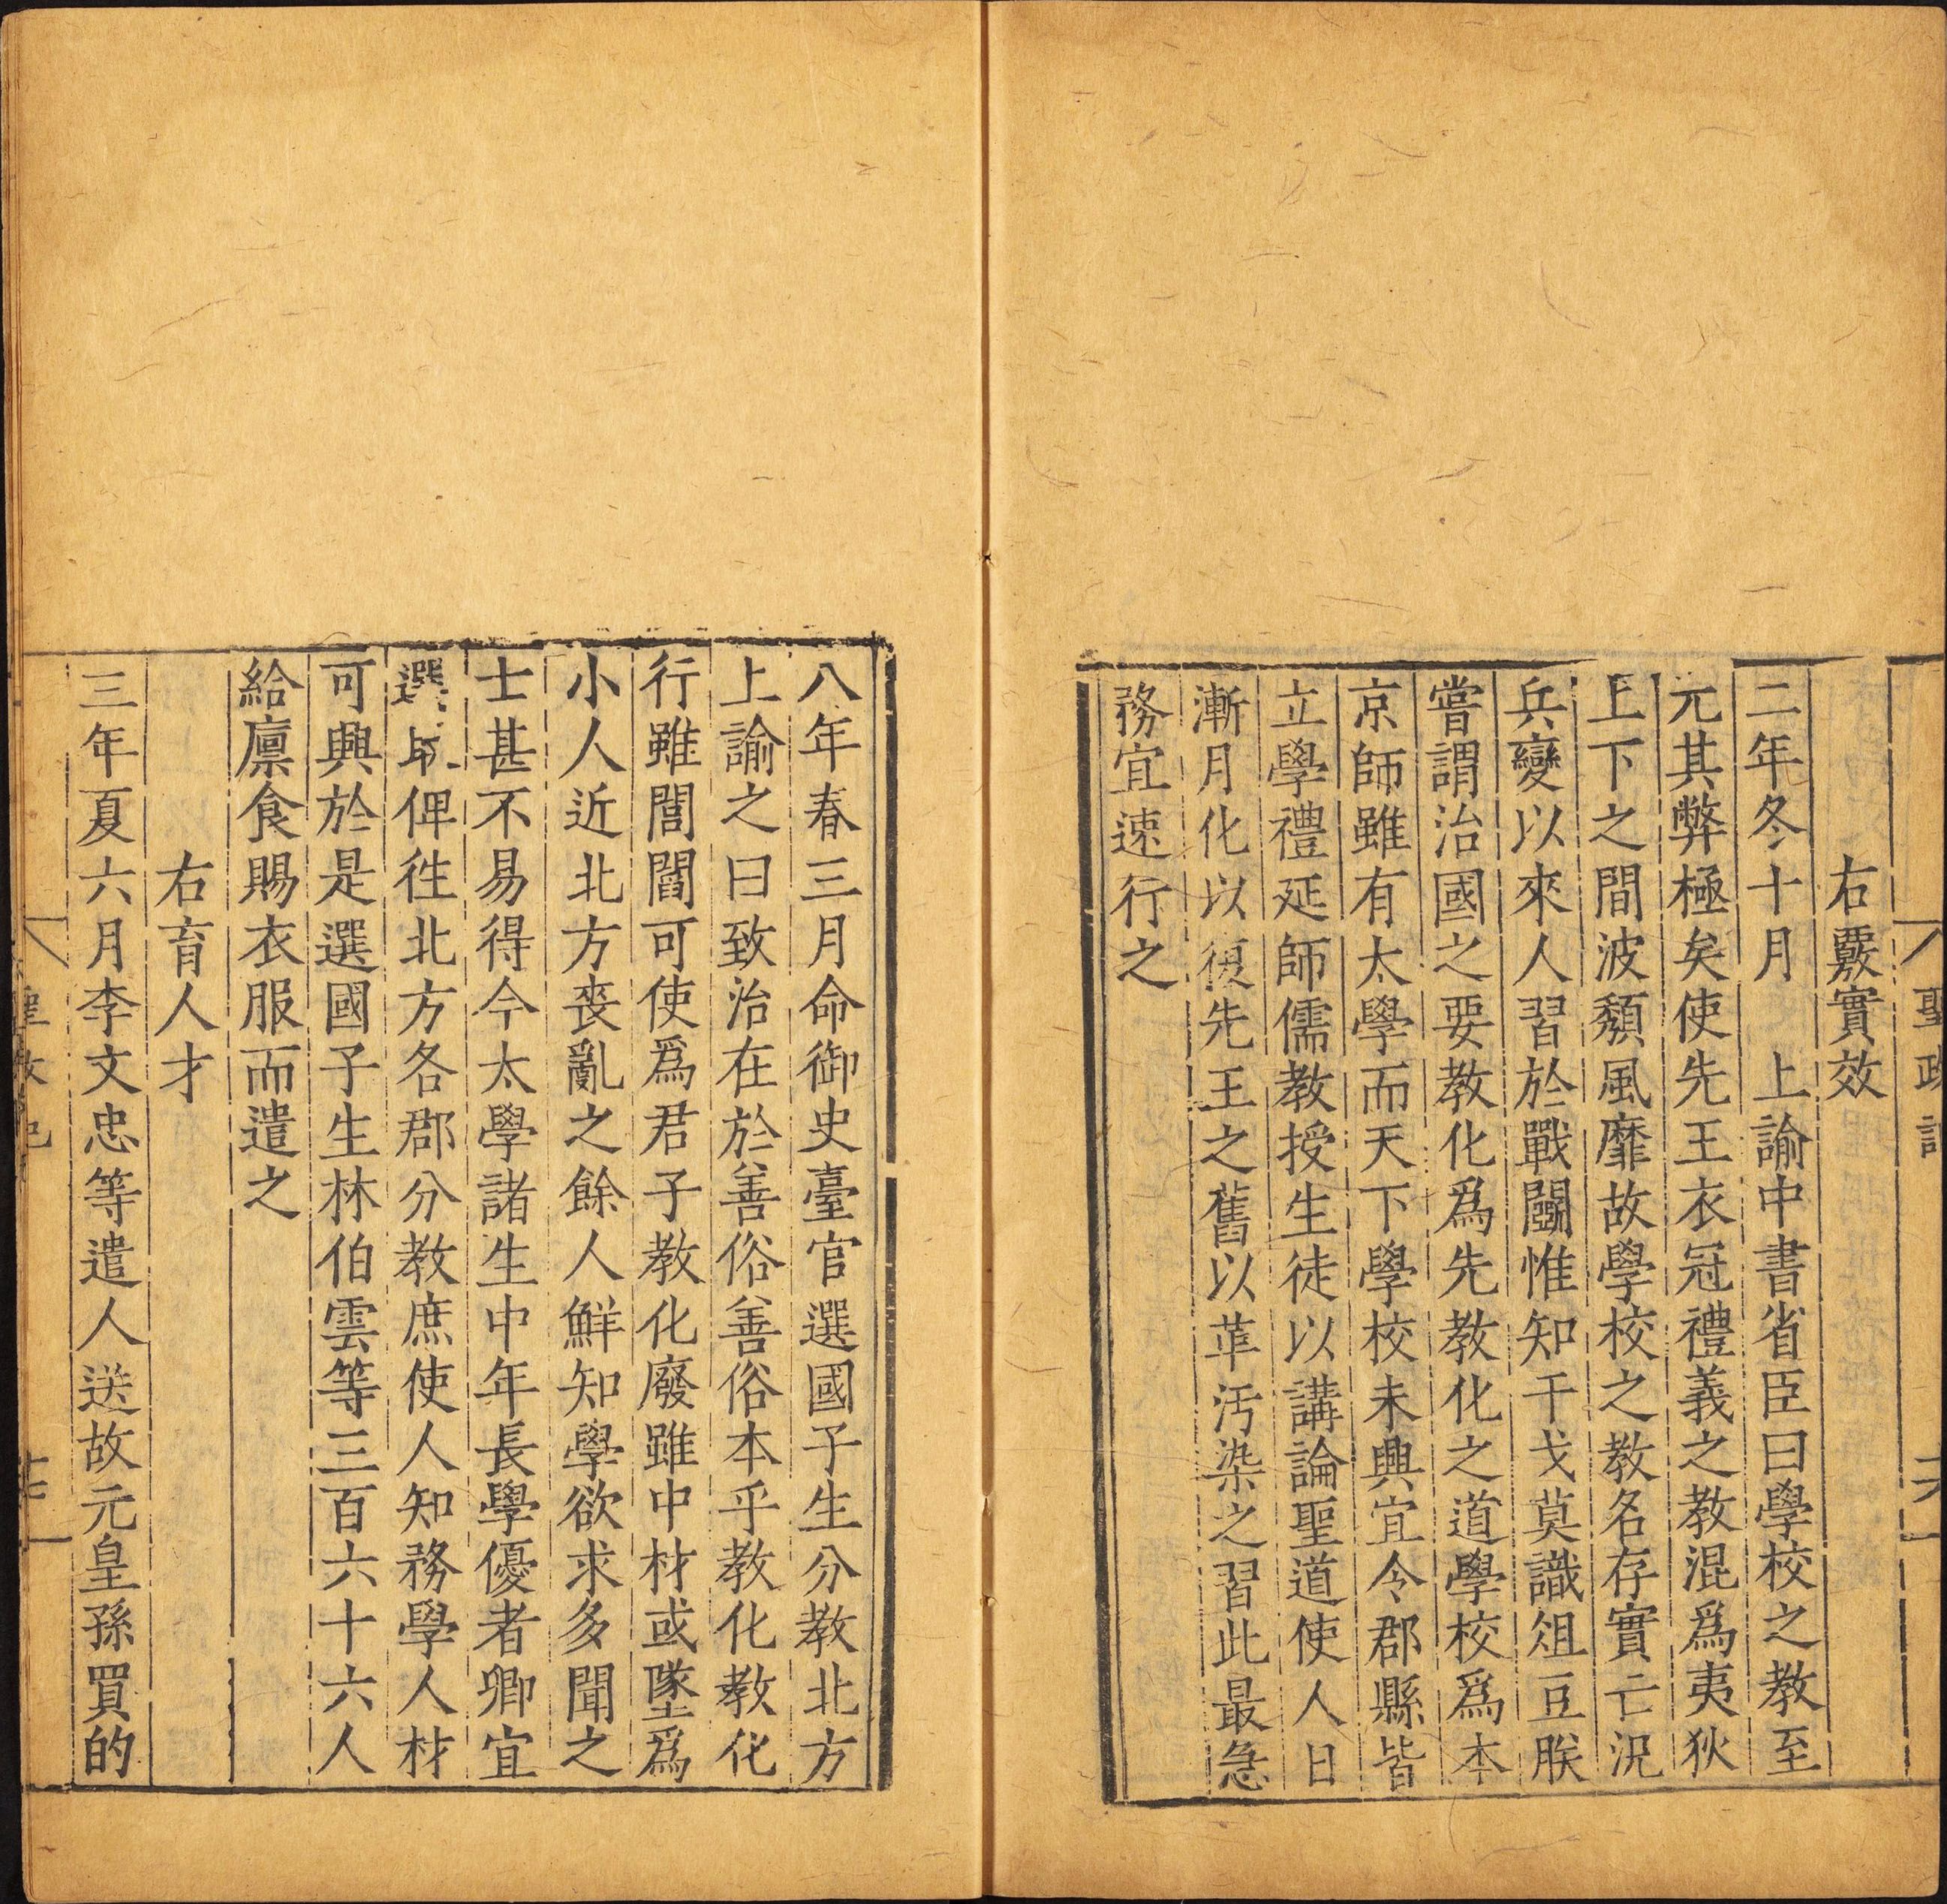 聖政記
右覈實效
二年冬十月　上諭中書省臣曰學校之教至
元其弊極矣使先王衣冠禮義之教混爲夷狄
上下之間波頹風靡故學校之教名存實亡況
兵變以來人習於戰鬪惟知干戈莫識俎豆朕
嘗謂治國之要教化爲先教化之道學校爲本
京師雖有太學而天下學校未興宜令郡縣皆
立學禮延師儒教授生徒以講論聖道使人日
漸月化以復先王之舊以革汚染之習此最急
務宜速行之
八年春三月命御史臺官選國子生分教北方
上諭之曰致治在於善俗善俗本乎教化教化
行雖閭閻可使爲君子教化廢雖中材或墜爲
小人近北方喪亂之餘人鮮知學欲求多聞之
士甚不易得今太學諸生中年長學優者卿宜
選取俾徃北方各郡分教庶使人知務學人材
可興於是選國子生林伯雲等三百六十六人
給廪食賜衣服而遣之
右育人才
三年夏六月李文忠等遣人送故元皇孫買的
聖政記